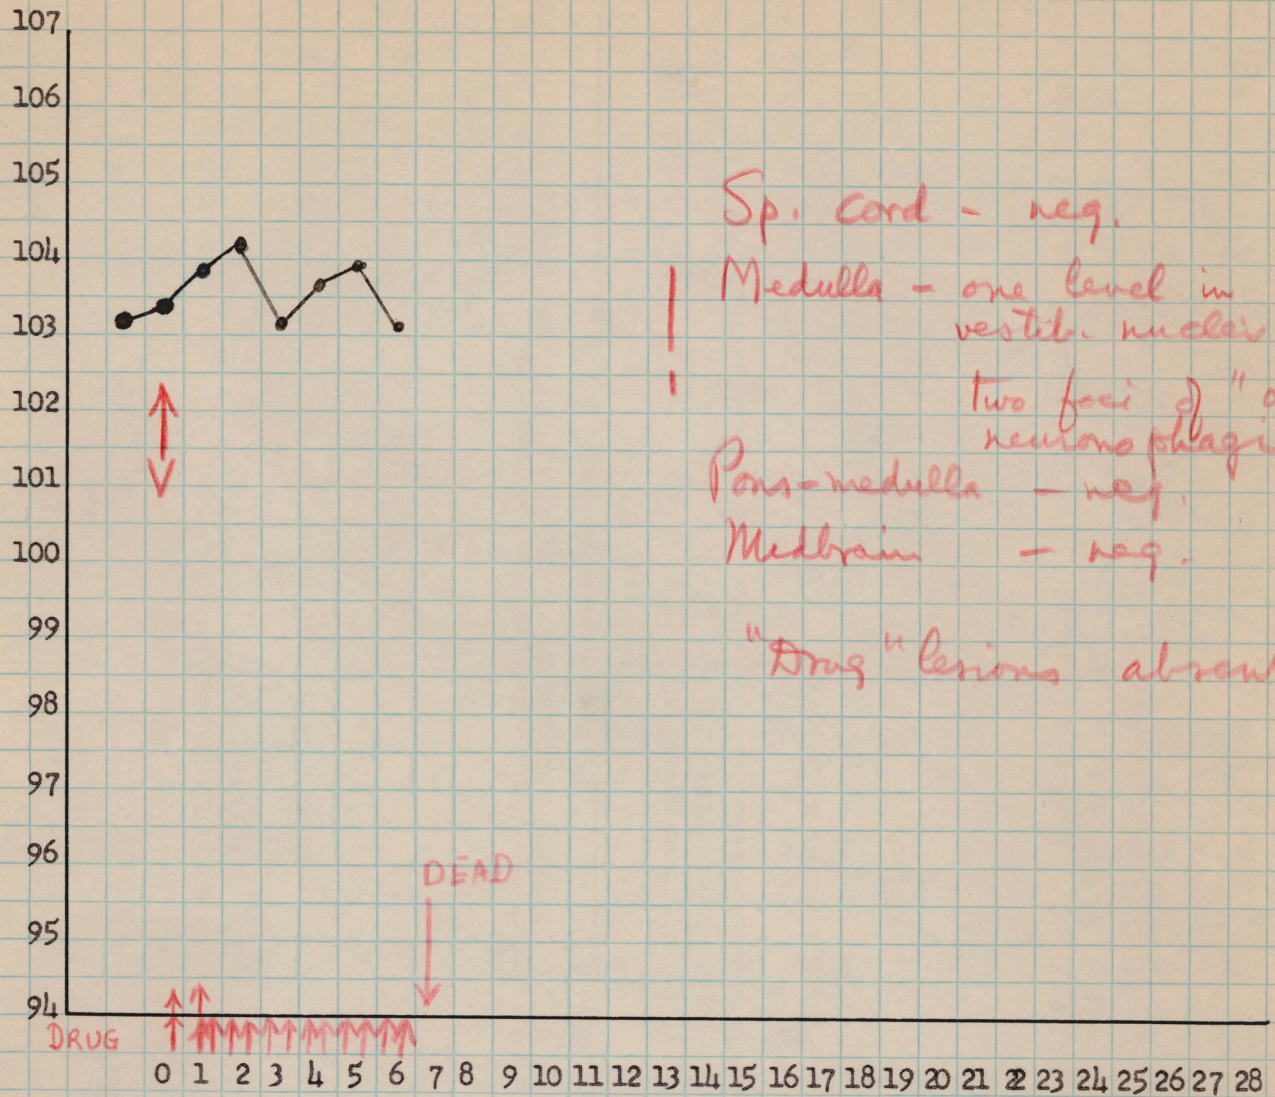 107
106
105
104
103
102
101
100
99
98
97
96
95
94
Sp. cord - neg.
Medulla - one level in
vestib. nuclei
two foci of "
neuronophagi
Pons-medulla - neg.
Midbrain - neg.
"Drug" lesions absent
DEAD
DRUG
0 1 2 3 4 5 6 7 8 9 10 11 12 13 14 15 16 17 18 19 20 21 22 23 24 25 26 27 28